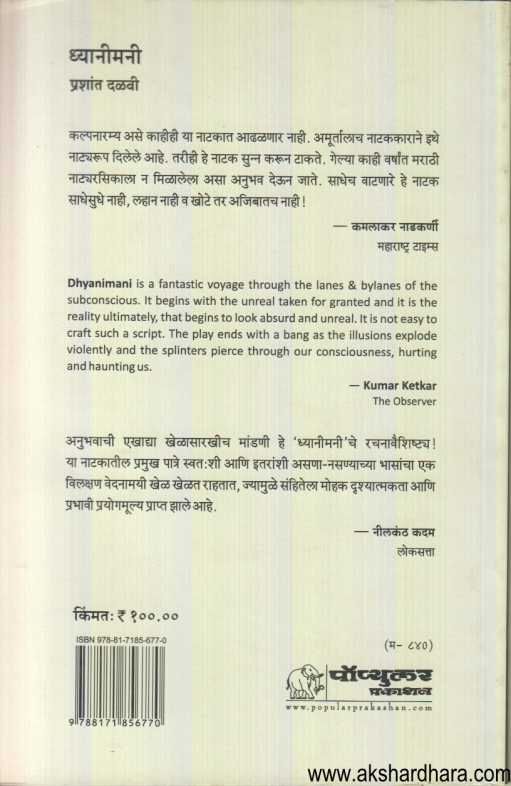 ध्यानीमनी
प्रशांत दळवी
कल्पनारम्य असे काहीही या नाटकात आढळणार नाही. अमूर्तालाच नाटककाराने इथे
नाट्यरूप दिलेले आहे. तरीही हे नाटक सुन्न करून टाकते. गेल्या काही वर्षांत मराठी
नाट्यरसिकाला न मिळालेला असा अनुभव देऊन जाते. साधेच वाटणारे हे नाटक
साधेसुधे नाही, लहान नाही व खोटे तर अजिबातच नाही!
— कमलाकर नाडकर्णी
महाराष्ट्र टाइम्स
Dhyanimani is a fantastic voyage through the lanes & bylanes of the
subconscious. It begins with the unreal taken for granted and it is the
reality ultimately, that begins to look absurd and unreal. It is not easy to
craft such a script. The play ends with a bang as the illusions explode
violently and the splinters pierce through our consciousness, hurting
and haunting us.
— Kumar Ketkar
The Observer
अनुभवाची एखाद्या खेळासारखीच मांडणी हे ‘ध्यानीमनी’चे रचनावैशिष्ट्य!
या नाटकातील प्रमुख पात्रे स्वतःशी आणि इतरांशी असणा-नसण्याच्या भासांचा एक
विलक्षण वेदनामयी खेळ खेळत राहतात, ज्यामुळे संहितेला मोहक दृश्यात्मकता आणि
प्रभावी प्रयोगमूल्य प्राप्त झाले आहे.
— नीलकंठ कदम
लोकसत्ता
किंमत: ₹ १००.००
ISBN 978-81-7185-677-0
9 788171 856770
(म- ८४०)
पॉप्युलर
प्रकाशन
www.popularprakashan.com
www.akshardhara.com